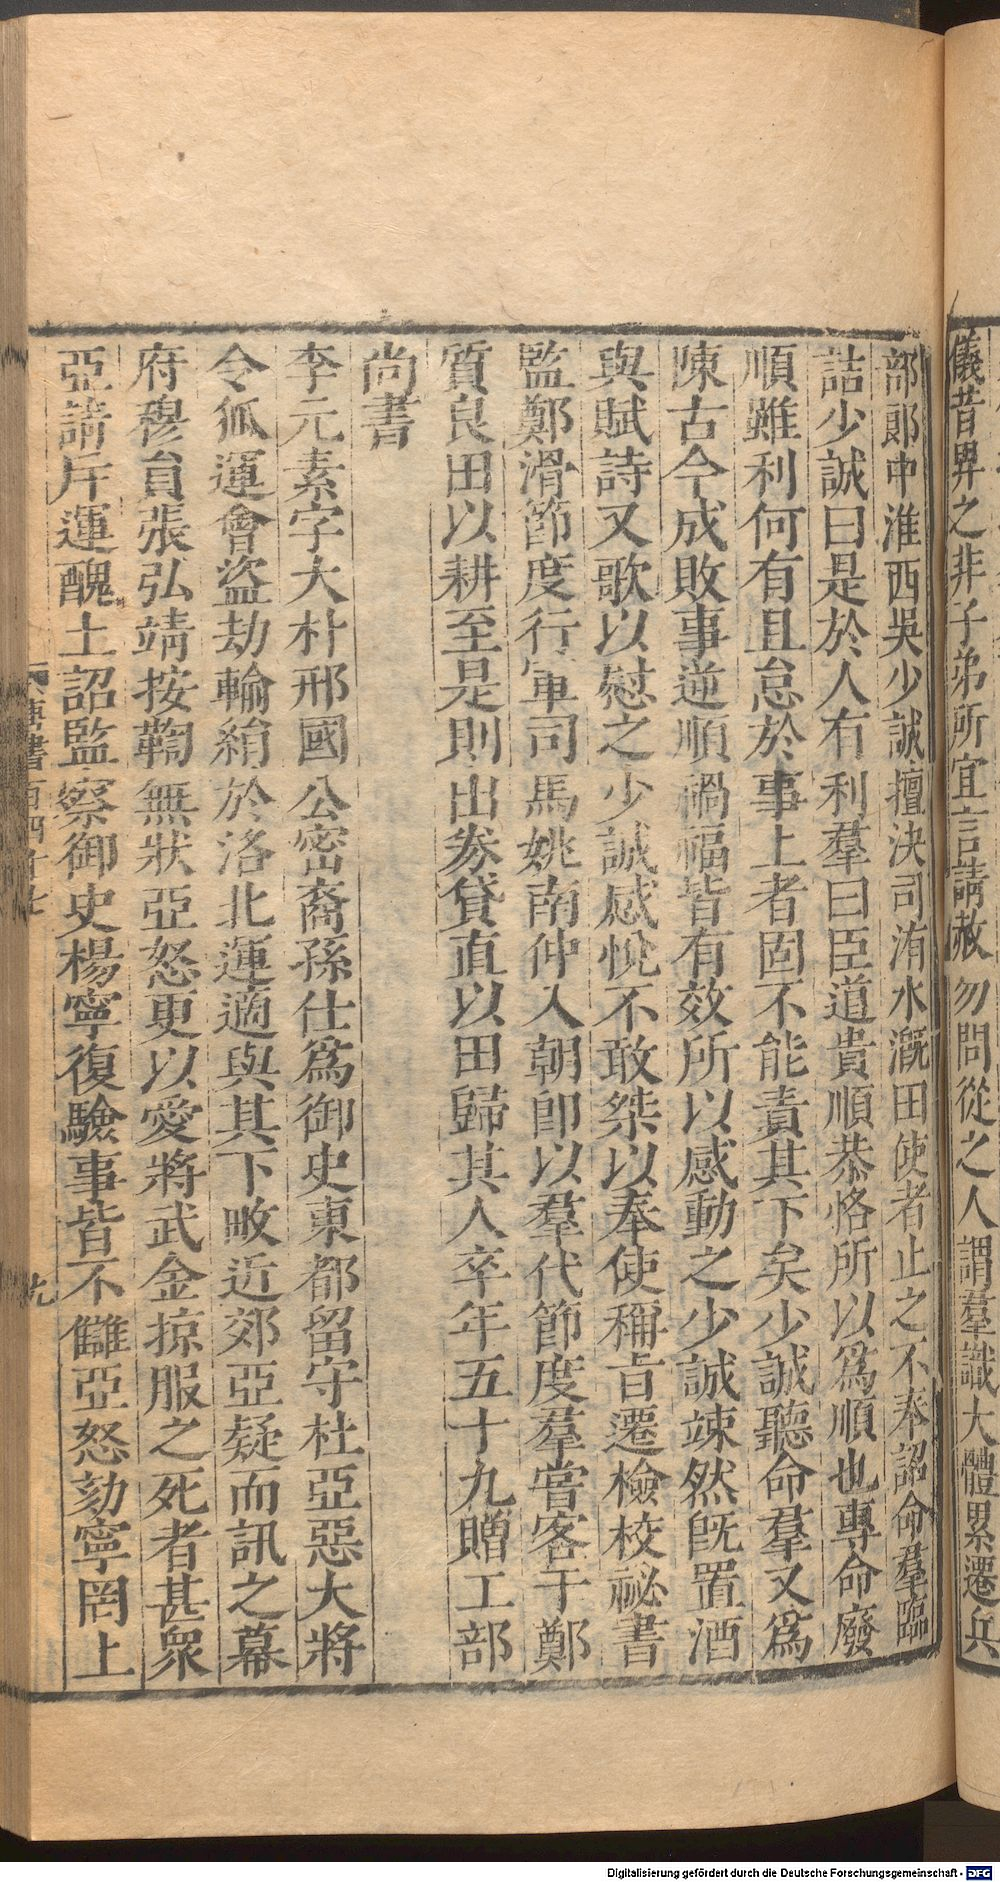 儀昔畀之非子弟所宜言請赦勿問從之人謂羣識大體累遷兵
部郎中淮西吳少誠擅決司洧水溉田使者止之不奉詔命羣臨
詰少誠曰是於人有利羣曰臣道貴順恭恪所以爲順也專命廢
順雖利何有且怠於事上者固不能責其下矣少誠聽命羣又爲
陳古今成敗事逆順禍福皆有效所以感動之少誠竦然旣置酒
與賦詩又歌以慰之少誠感悅不敢桀以奉使稱旨遷檢校祕書
監鄭滑節度行軍司馬姚南仲入朝卽以羣代節度羣嘗客于鄭
質良田以耕至是則出券貸直以田歸其人卒年五十九贈工部
尚書
李元素字大朴邢國公密裔孫仕爲御史東都留守杜亞惡大將
令狐運會盜劫輸絹於洛北運適與其下畋近郊亞疑而訊之幕
府穆員張弘靖按鞫無狀亞怒更以愛將武金掠服之死者甚衆
亞請斥運醜土詔監察御史楊寧復驗事皆不讎亞怒劾寧罔上
唐書百四十七
九
Digitalisierung gefördert durch die Deutsche Forschungsgemeinschaft - DFG